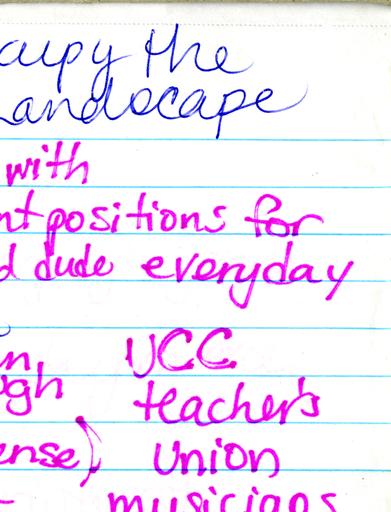 cupy the
Landscape
with
nt positions for
d dude everyday
n UCC
ugh teachers
ense) Union
musicians